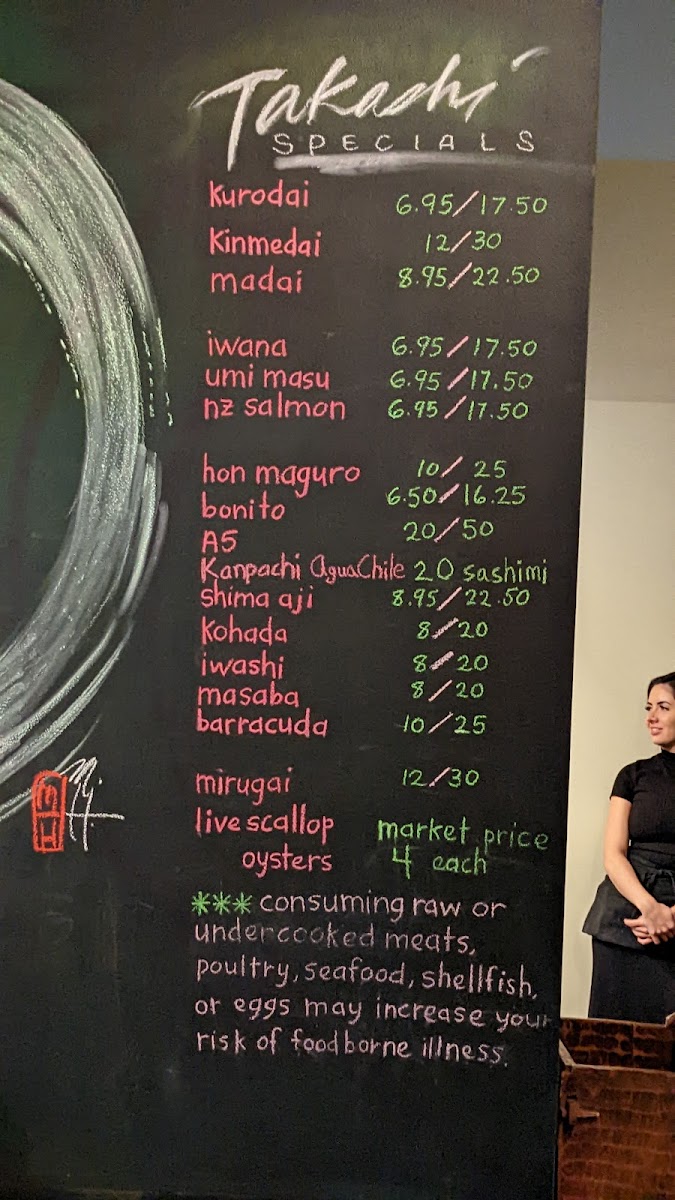 Takashi
SPECIALS
Kurodai 6.95/17.50
Kinmedai 12/30
madai 8.95/22.50
iwana 6.95/17.50
umi masu 6.95/17.50
nz salmon 6.95/17.50
hon maguro 10/25
bonito 6.50/16.25
A5 20/50
Kanpachi aguaChile 20 sashimi
shima aji 8.95/22.50
Kohada 8/20
iwashi 8/20
masaba 8/20
barracuda 10/25
mirugai 12/30
live scallop market price
oysters 4 each
*** consuming raw or
undercooked meats,
poultry, seafood, shellfish,
or eggs may increase your
risk of foodborne illness.